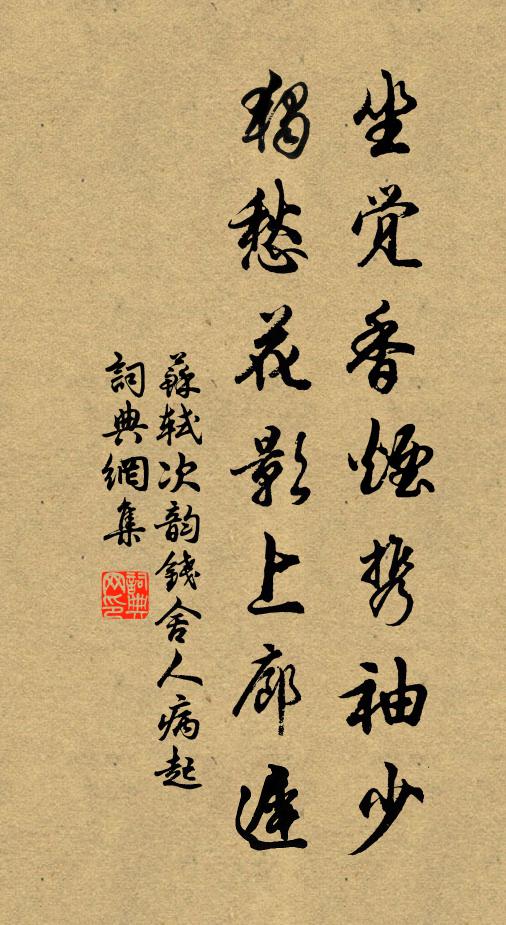 坐觉香煙携袖少
獨愁花影上廊遲
蘇軾次韵錢舍人病起
詞典網集
詞典網印